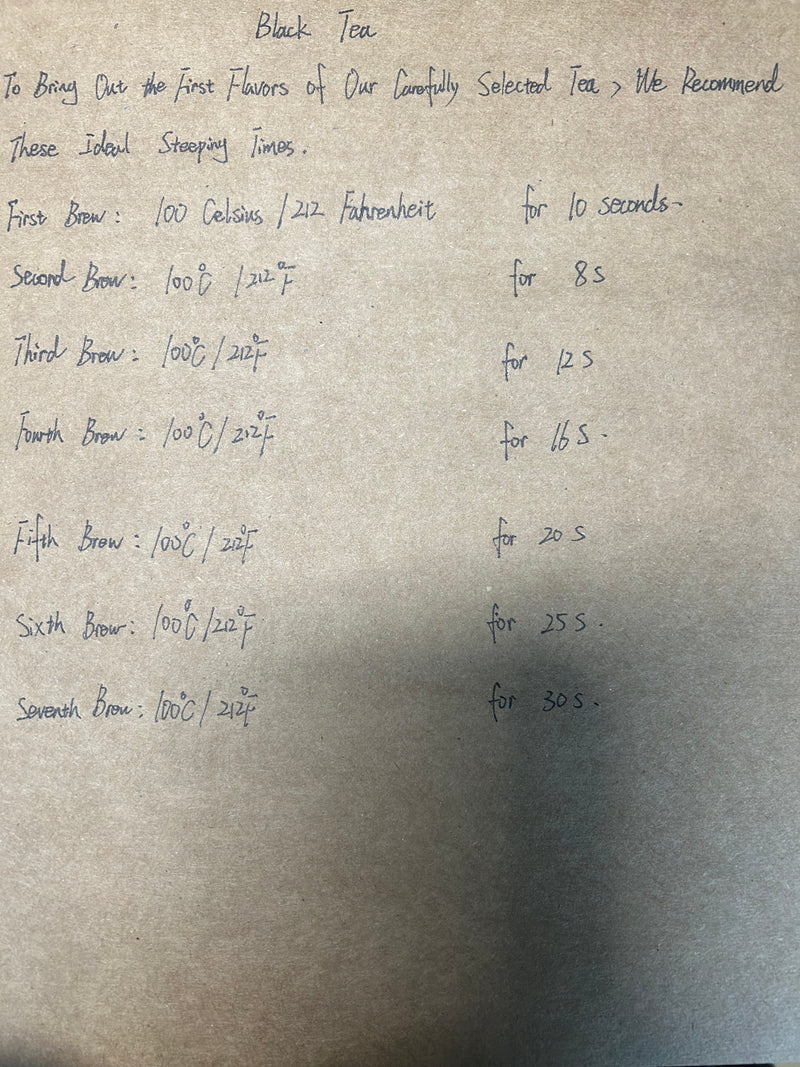 Black Tea
To Bring Out the First Flavors of Our Carefully Selected Tea, We Recommend
These Ideal Steeping Times.
First Brew: 100 Celsius / 212 Fahrenheit for 10 seconds.
Second Brew: 100°C / 212°F for 8s
Third Brew: 100°C / 212°F for 12s
Fourth Brew: 100°C / 212°F for 16s.
Fifth Brew: 100°C / 212°F for 20s
Sixth Brew: 100°C / 212°F for 25s.
Seventh Brew: 100°C / 212°F for 30s.